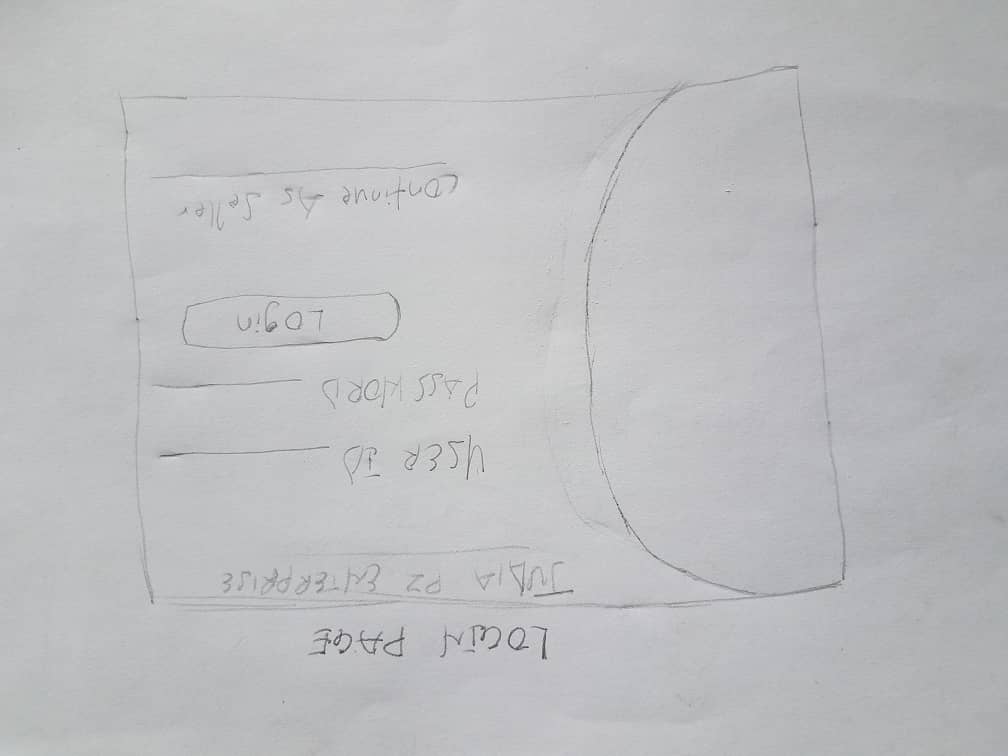 LOGIN PAGE
JUDIA PZ ENTERPRISE
USER ID
PASSWORD
Login
Continue As Seller